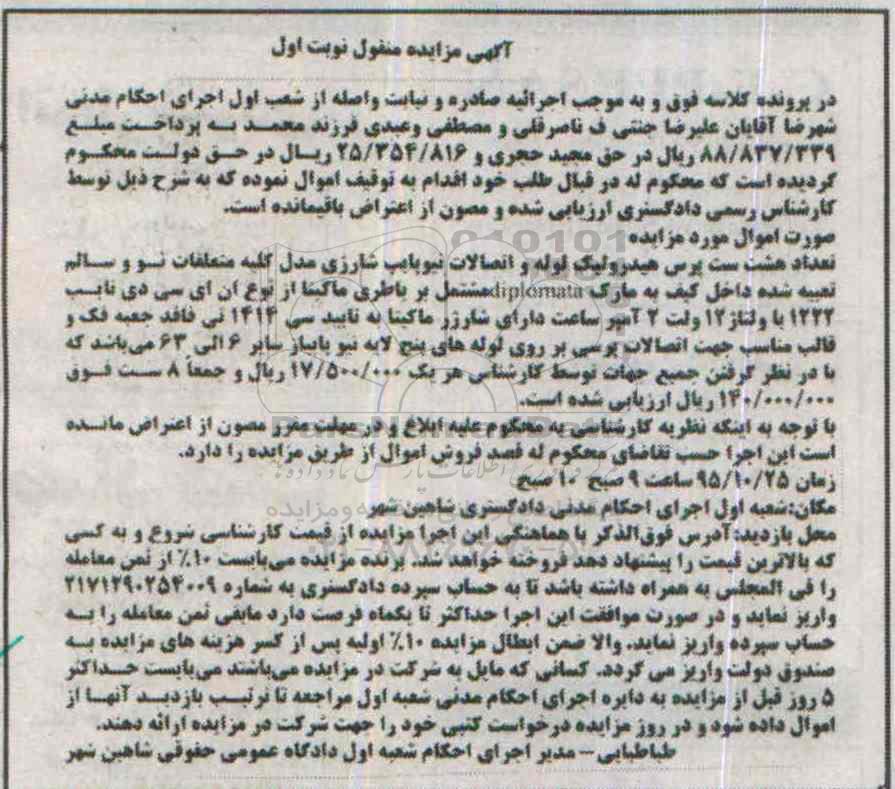 آگهی مزایده منقول نوبت اول
در پرونده کلاسه فوق و به موجب اجرائیه صادره و نیابت واصله از شعب اول اجرای احکام مدنی
شهرضا آقایان علیرضا جنتی ف ناصرقلی و مصطفی وعیدی فرزند محمد به پرداخت مبلغ
۸۸/۸۳۷/۳۳۹ ریال در حق مجید حجری و ۲۵/۳۵۴/۸۱۶ ریال در حق دولت محکوم
گردیده است که محکوم له در قبال طلب خود اقدام به توقیف اموال نموده که به شرح ذیل توسط
کارشناس رسمی دادگستری ارزیابی شده و مصون از اعتراض باقیمانده است.
صورت اموال مورد مزایده
تعداد هشت ست پرس هیدرولیک لوله و اتصالات نیوپایپ شارژی مدل کلیه متعلقات نو و سالم
تعبیه شده داخل کیف به مارک diplomata مشتمل بر باطری ماکیتا از نوع ان ای سی دی تایپ
۱۲۲۲ با ولتاژ ۱۲ ولت ۲ آمپر ساعت دارای شارژر ماکیتا به تایید سی ۱۴۱۴ تی فاقد جعبه فک و
قالب مناسب جهت اتصالات پرسی بر روی لوله های پنج لایه نیو پاساز سایز ۶ الی ۶۳ می‌باشد که
با در نظر گرفتن جمیع جهات توسط کارشناس هر یک ۱۷/۵۰۰/۰۰۰ ریال و جمعاً ۸ ست فوق
۱۴۰/۰۰۰/۰۰۰ ریال ارزیابی شده است.
با توجه به اینکه نظریه کارشناسی به محکوم علیه ابلاغ و در مهلت مقرر مصون از اعتراض مانده
است این اجرا حسب تقاضای محکوم له قصد فروش اموال از طریق مزایده را دارد.
زمان ۹۵/۱۰/۲۵ ساعت ۹ صبح ۱۰ صبح
مکان: شعبه اول اجرای احکام مدنی دادگستری شاهین شهر
محل بازدید: آدرس فوق‌الذکر با هماهنگی این اجرا مزایده از قیمت کارشناسی شروع و به کسی
که بالاترین قیمت را پیشنهاد دهد فروخته خواهد شد. برنده مزایده می‌بایست ۱۰٪ از ثمن معامله
را فی المجلس به همراه داشته باشد تا به حساب سپرده دادگستری به شماره ۲۱۷۱۲۹۰۲۵۴۰۰۹
واریز نماید و در صورت موافقت این اجرا حداکثر تا یکماه فرصت دارد مابقی ثمن معامله را به
حساب سپرده واریز نماید. والا ضمن ابطال مزایده ۱۰٪ اولیه پس از کسر هزینه های مزایده به
صندوق دولت واریز می گردد. کسانی که مایل به شرکت در مزایده می‌باشند می‌بایست حداکثر
۵ روز قبل از مزایده به دایره اجرای احکام مدنی شعبه اول مراجعه تا ترتیب بازدید آنها از
اموال داده شود و در روز مزایده درخواست کتبی خود را جهت شرکت در مزایده ارائه دهند.
طباطبایی – مدیر اجرای احکام شعبه اول دادگاه عمومی حقوقی شاهین شهر